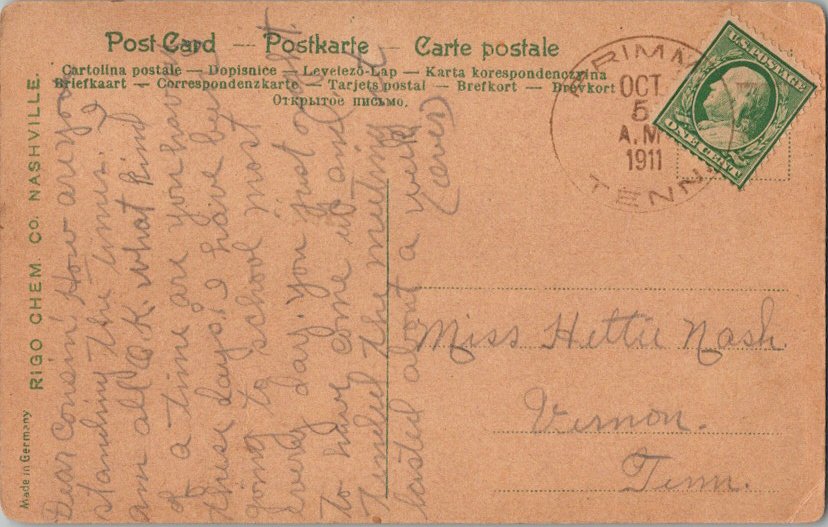 Post Card — Postkarte — Carte postale
Cartolina postale — Dopisnice — Levelező-Lap — Karta korespondencyjna
Briefkaart — Correspondenzkarte — Tarjets postal — Brefkort — Brevkort
Открытое письмо.
RIGO CHEM. CO. NASHVILLE.
Made in Germany
OCT
5
A.M
1911
TENN.
U.S. POSTAGE
ONE CENT
Dear Cousin, How are you
standing the times. I
am all O.K. what kind
of a time are you having
these days, I have been
going to school most
every day. You just ought
to have come up and
tended the meeting it
lasted about a week
(over)
Miss Hettie Nash
Vernon.
Tenn.